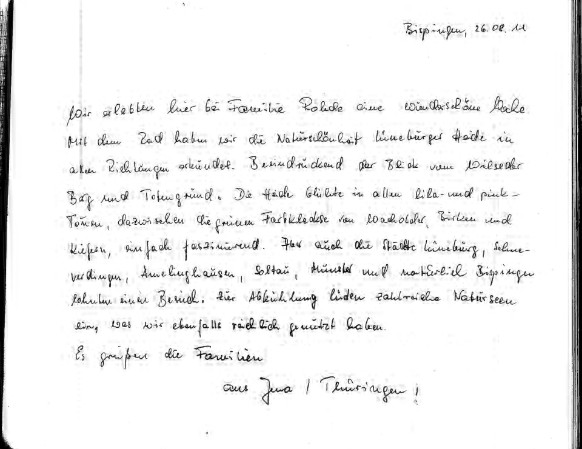 Bispingen, 26.08.11
Wir erlebten hier bei Familie Rohde eine wunderschöne Woche
Mit dem Rad haben wir die Naturschönheit Lüneburger Heide in
allen Richtungen erkundet. Beeindruckend der Blick vom Wilseder
Berg und Totengrund. Die Heide blühte in allen lila- und pink-
Tönen, dazwischen die grünen Farbkleckse von Wacholder, Birken und
Kiefern, einfach faszinierend. Aber auch die Städte Lüneburg, Schne-
verdingen, Amelinghausen, Soltau, Munster und natürlich Bispingen
lohnten einen Besuch. Zur Abkühlung luden zahlreiche Naturseen
ein, was wir ebenfalls reichlich genutzt haben.
Es grüßen die Familien
aus Jena / Thüringen!